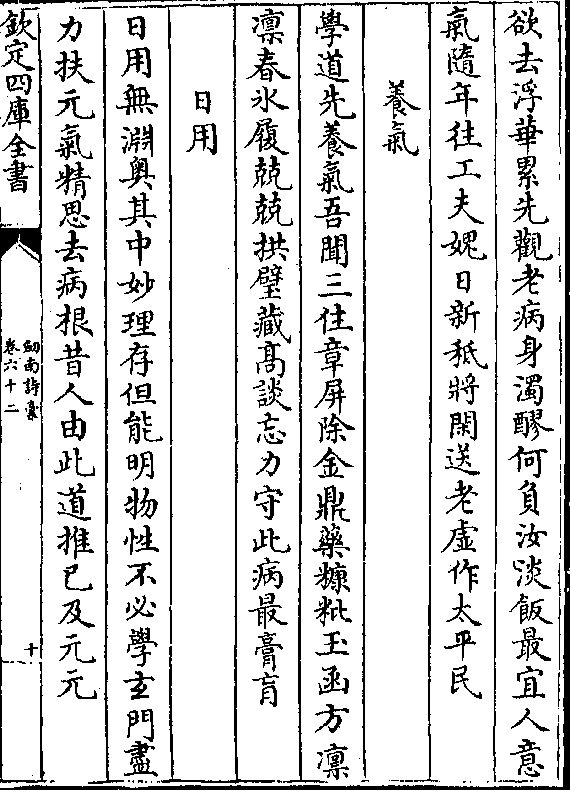 欲去浮華累先觀老病身濁醪何負汝淡飯最宜人意
氣隨年往工夫媿日新秪將閑送老虚作太平民
養氣
學道先養氣吾聞三住章屏除金鼎藥糠粃玉函方凛
凛春氷履兢兢拱璧藏髙談忘力守此病最膏肓
日用
日用無淵奥其中妙理存但能明物性不必學玄門盡
力扶元氣精思去病根昔人由此道推已及元元
欽定四庫全書
劒南詩稾
卷六十二
十